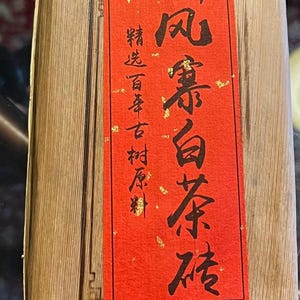 风寨白茶砖
精选百年古树原料